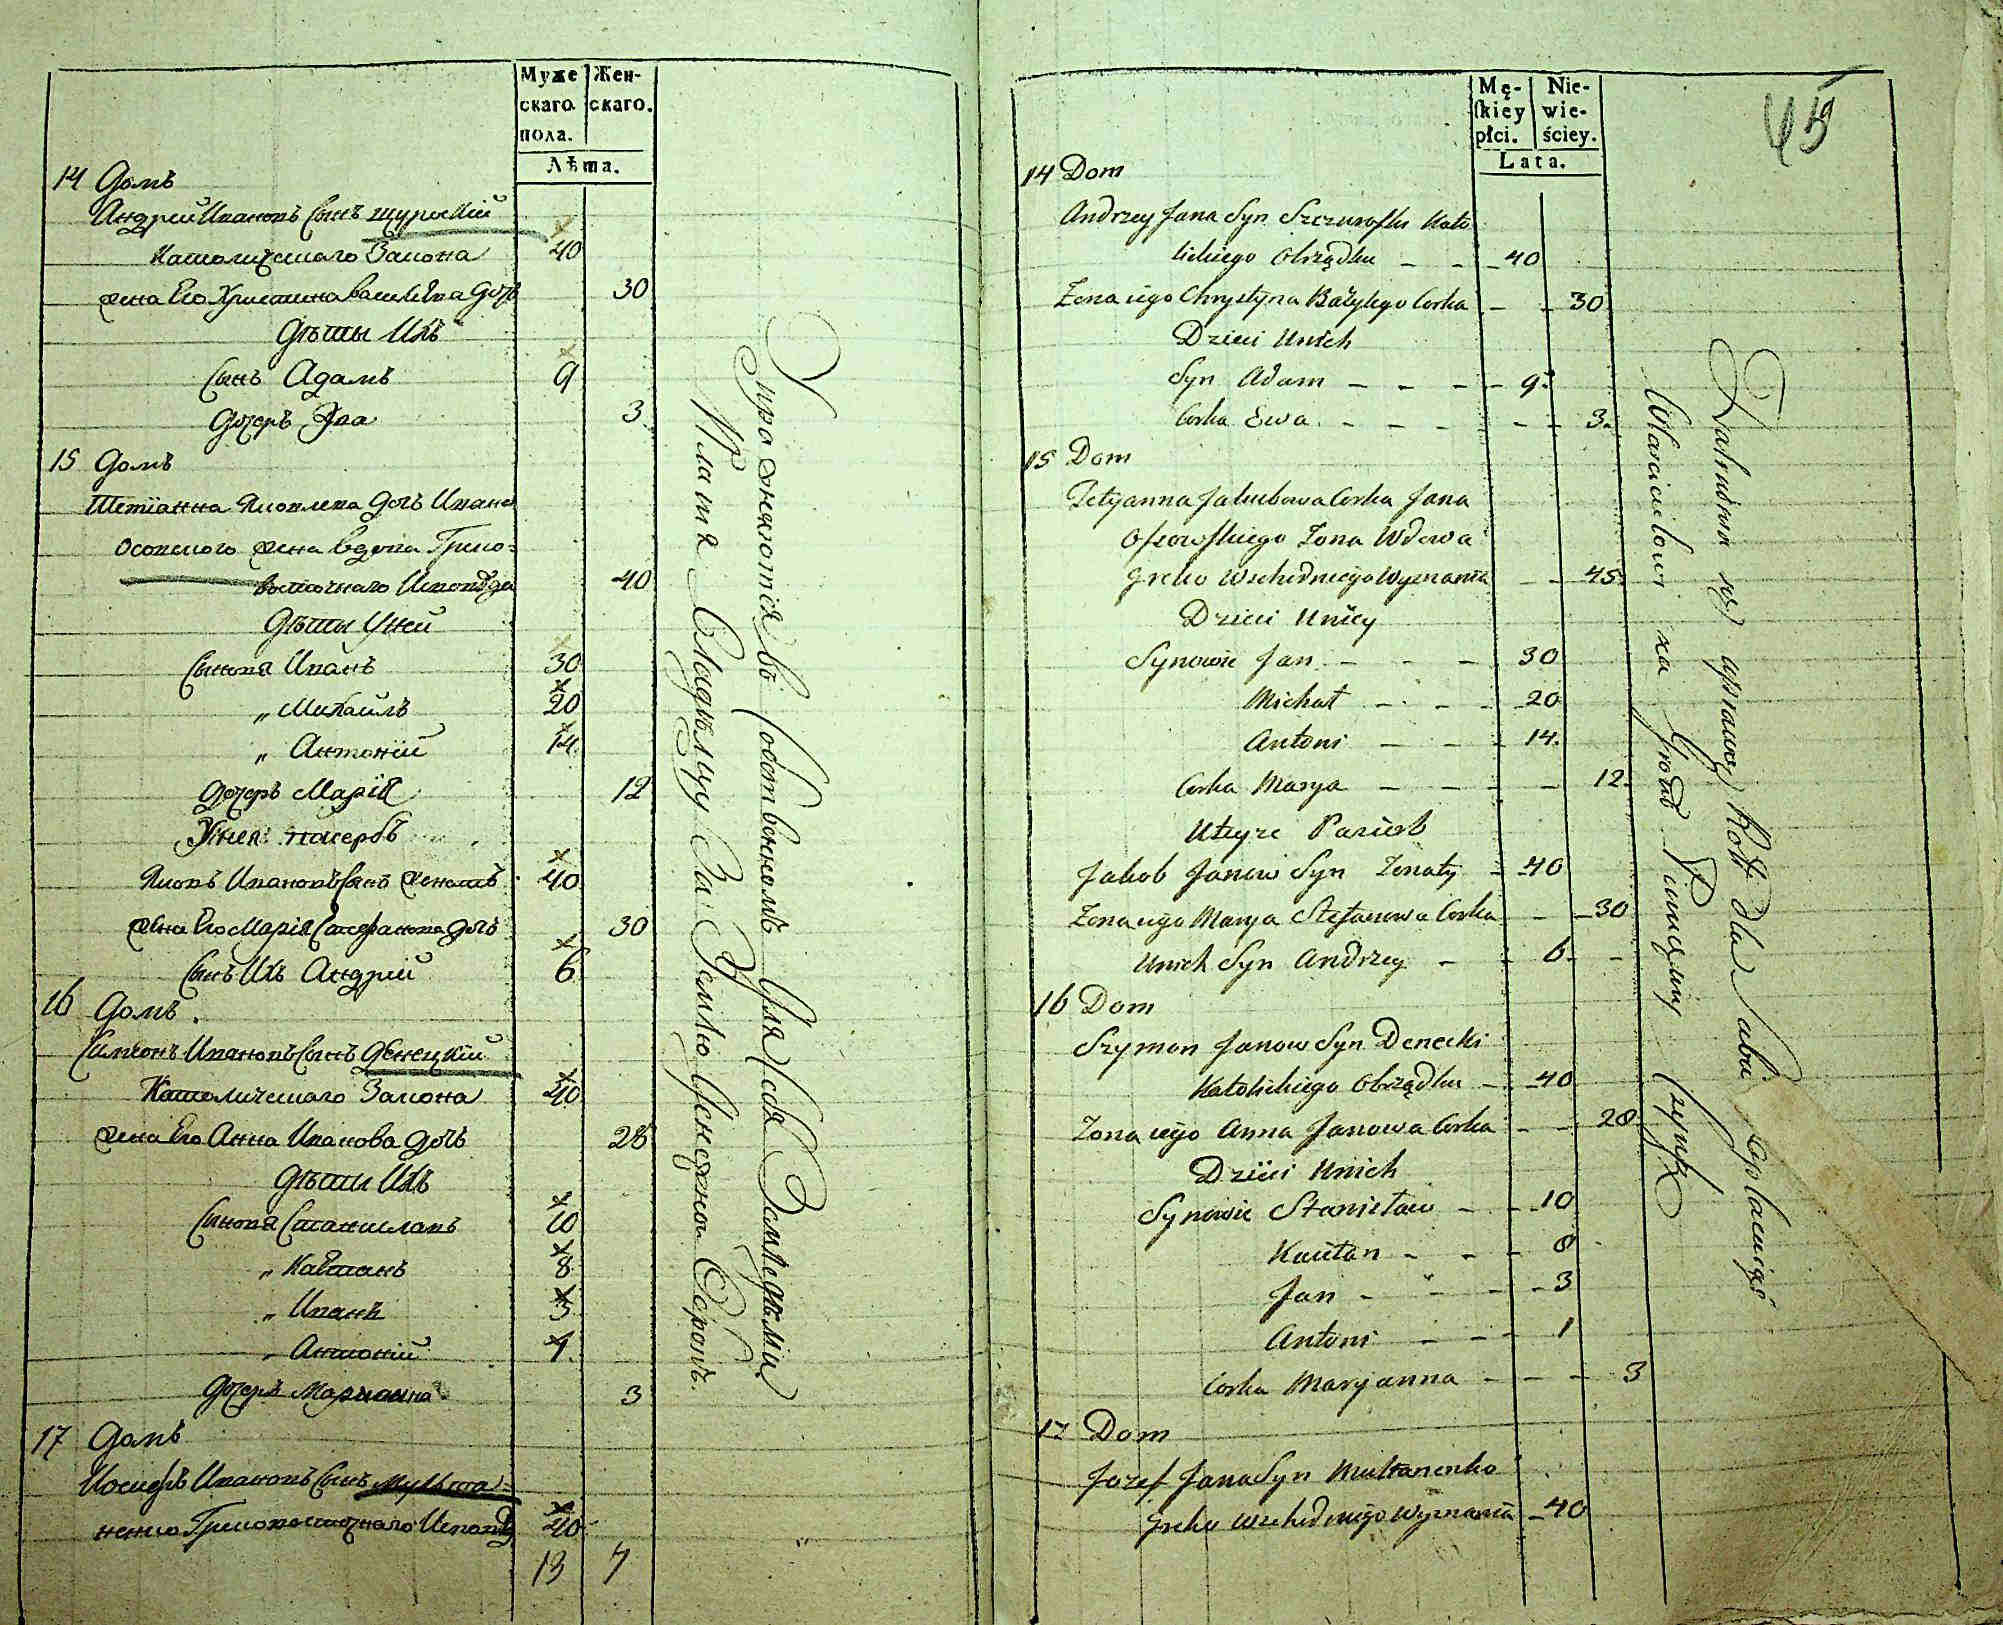 Муже
скаго
пола.
Жен-
скаго.
Лѣта.
14 Домъ
Андрей Ивановъ Сынъ Щурскій
Католическаго Закона 40
жена Его Христина Василіева дочь 30
Дѣты Ихъ
Сынъ Адамъ 9
Дочерь Эва 3
15 Домъ
Тетіанна Яковлева дочь Ивана
Осовского жена вдова Греко-
восточнаго Исповѣда 40
Дѣты Уней
Сынова Иванъ 30
„ Михаилъ 20
„ Антоній 14
Дочерь Марія 12
Уней пасербъ
Яковъ Ивановъ Сынъ женатъ 40
жена Его Марія Стефанова дочь 30
Сынъ Ихъ Андрій 6
16 Домъ
Симеонъ Ивановъ Сынъ Денецкій
Католическаго Закона 40
жена Его Анна Иванова дочь 28
Дѣты Ихъ
Сынова Станиславъ 10
„ Каетанъ 8
„ Иванъ 3
„ Антоній 1
Дочерь Марианна 3
17 Домъ
Иосифъ Ивановъ Сынъ Мульта-
ненко Грековосточнаго Исповѣд 40
13 7
Упражняются въ Собственномъ Для Себя Земледѣліи
Платя Владѣльцу За Землю Денежной Оброкъ.
45
Mę-
skiey
płci.
Nie-
wie-
ściey.
Lata.
14 Dom
Andrzey Jana Syn Szczurofski Kato
lickiego Obrządku - - 40
Zona iego Chrystyna Bazylego Corka - - 30
Dzieci Unich
Syn Adam - - - - 9.
Corka Ewa. - - - - - 3.
15 Dom
Tetyanna Jakubowa Corka Jana
Osowskiego Zona Wdowa
Greko Wschidniego Wyznania - - 45.
Dzieci Unicy
Synowie Jan - - - 30
Michał - - - 20
Antoni - - - 14.
Corka Marya - - - - - 12.
Uteyze Pasierb
Jakob Janow Syn Zonaty - 40
Zona iego Marya Stefanowa Corka - - 30
Unich Syn Andrzey - - 6. -
16 Dom
Szymon Janow Syn Denecki
Katolickiego Obrządku - 40
Zona iego Anna Janowa Corka - - 28
Dzieci Unich
Synowie Stanisław - - 10
Kaietan - - - 8
Jan - - - - 3
Antoni - - - 1
Corka Maryanna - - - 3
17 Dom
Jozef Jana Syn Multanenko
Greko Wschidniego Wyznania - 40
Zatrudnia się uprawą Roli dla Siebie opłacaiąc
Własicielowi za Grunt Pieniężny Czynsz